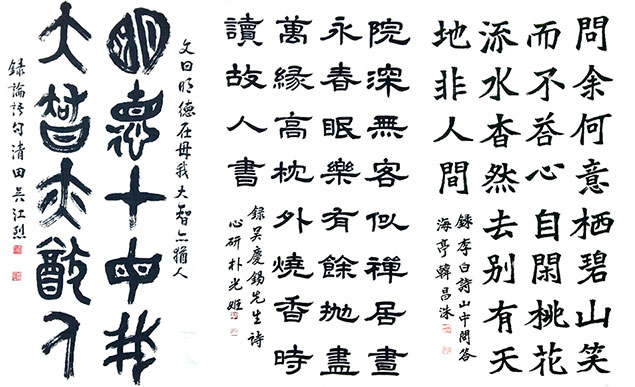 問余何意栖碧山笑
而不荅心自閑桃花
流水杳然去別有天
地非人間
錄李白詩山中問答
海亭韓昌洙
院深無客似禪居晝
永春眠樂有餘抛盡
萬緣高枕外燒香時
讀故人書
録吴慶錫先生詩
心研朴光姬
文曰明德在毋我大智亦猶人
明悳才毋我
大智亦猷人
録論語句清田吴江烈